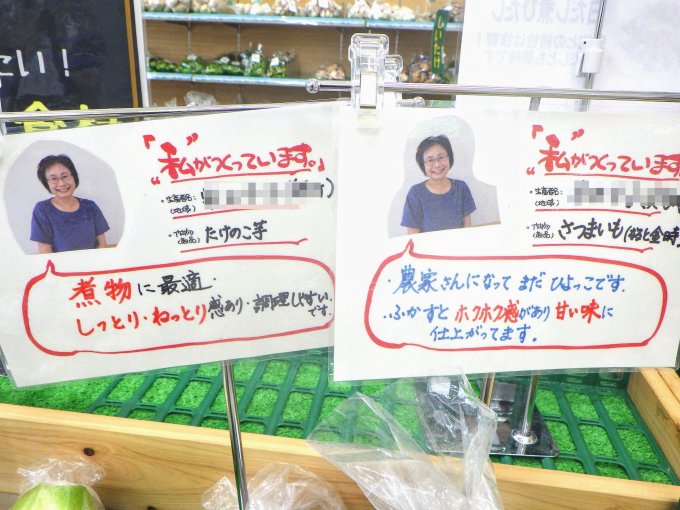 こい！
しいたけ
「"私"がつくっています。」
・生産者名:
(地域)
・作物
(商品)
たけのこ芋
煮物に最適・
しっとり・ねっとり感あり・調理しやすい
です。
「"私"がつくっています
・生産者名:
(地域)
・作物
(商品)
さつまいも(紅と金時)
・農家さんになって まだ ひよっこです.
・ふかすと ホクホク感があり 甘い味に
仕上がってます。